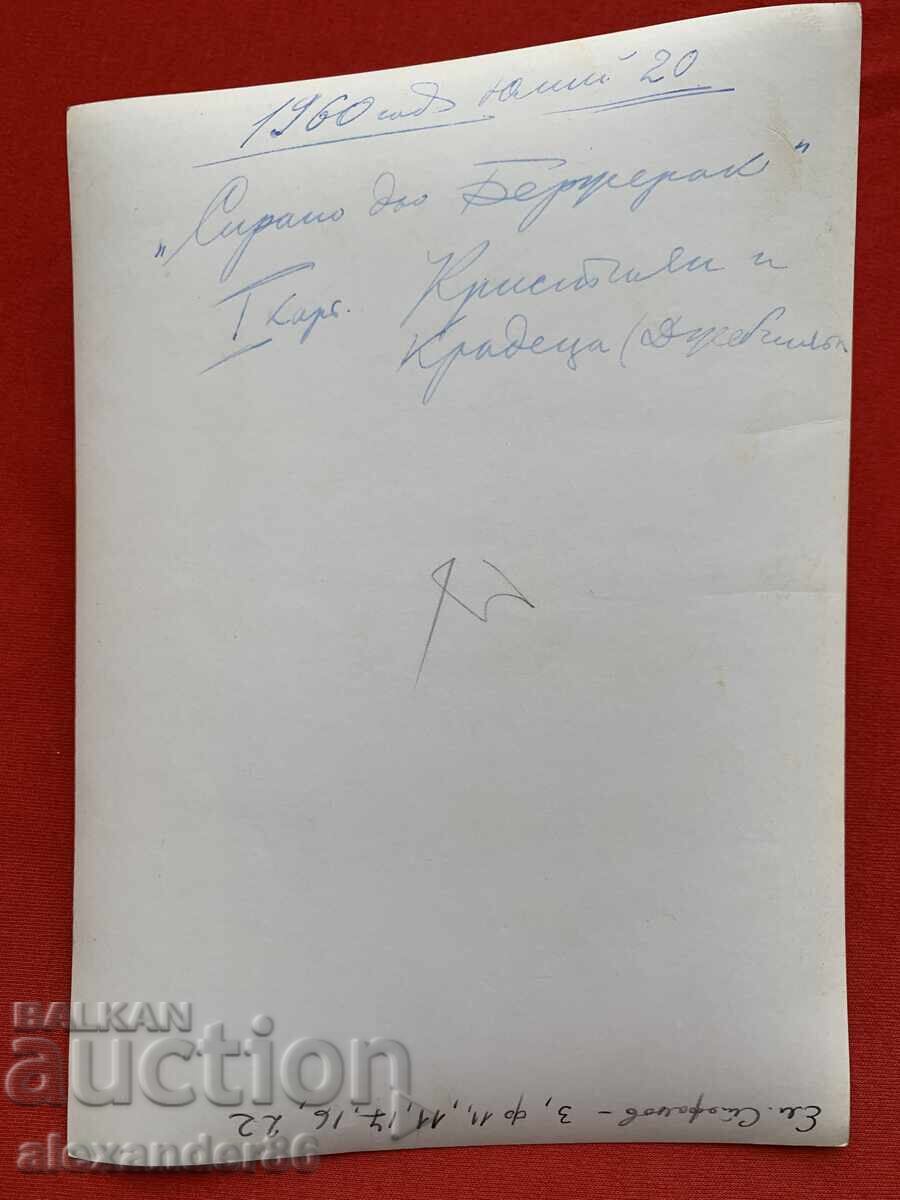 1960 год. юлий 20
„Сирано дьо Бержерак"
I карт. Кристиян и
Крадеца (
Ем. Стефанов - 3, ф 11, 11, 17, 16, 22
BALKAN
auction
alexander86